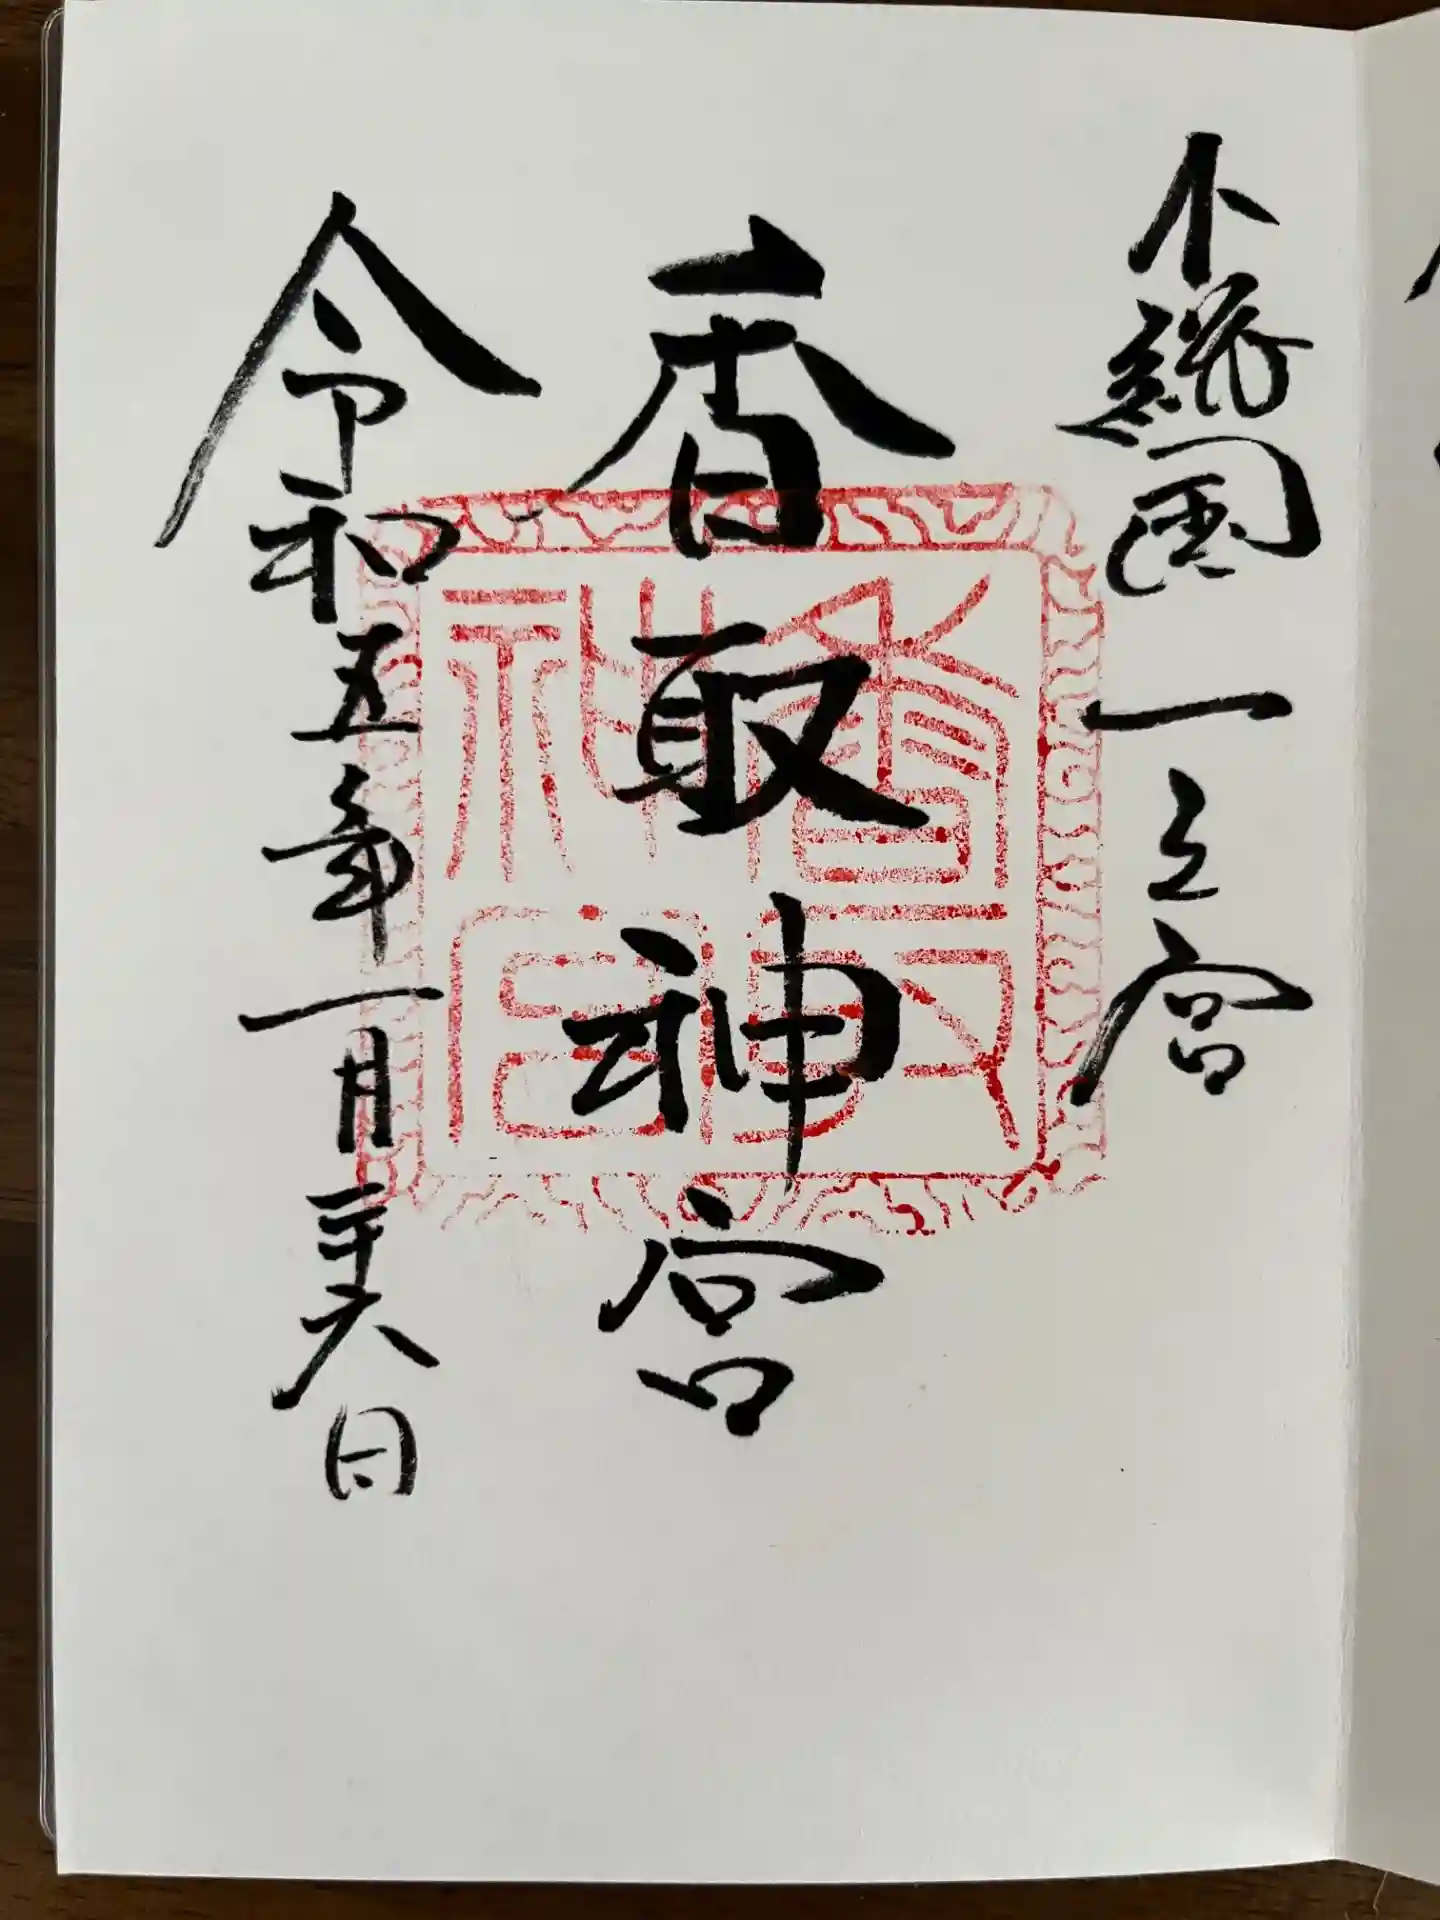 下総国一之宮
香取神宮
令和五年一月二十六日
香取
神宮